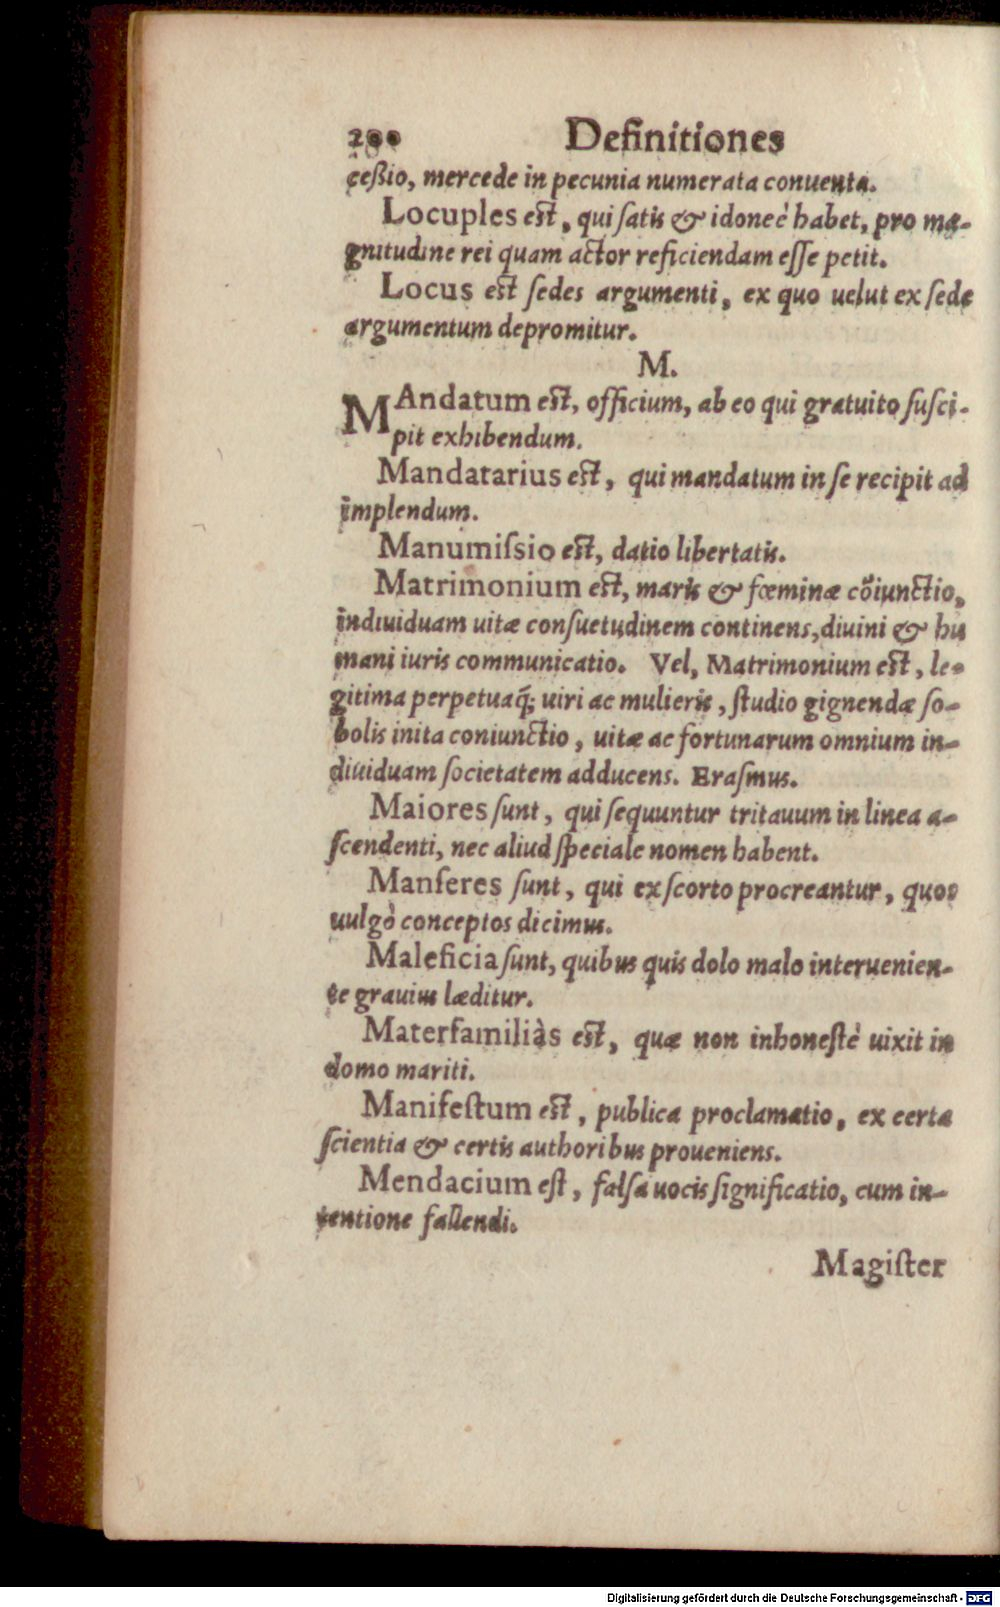 200 Definitiones
ceßio, mercede in pecunia numerata conuenta.
Locuples est, qui ſatis & idoneè habet, pro ma-
gnitudine rei quam actor reficiendam eſſe petit.
Locus est ſedes argumenti, ex quo uelut ex ſede
argumentum depromitur.
M.
MAndatum est, officium, ab eo qui gratuito ſuſci-
pit exhibendum.
Mandatarius est, qui mandatum in ſe recipit ad
implendum.
Manumiſsio est, datio libertatis.
Matrimonium est, maris & fœminæ cõiunctio,
indiuiduam uitæ conſuetudinem continens, diuini & hu
mani iuris communicatio. Vel, Matrimonium est, le-
gitima perpetuaq́; uiri ac mulieris, ſtudio gignendæ ſo-
bolis inita coniunctio, uitæ ac fortunarum omnium in-
diuiduam ſocietatem adducens. Eraſmus.
Maiores ſunt, qui ſequuntur tritauum in linea a-
ſcendenti, nec aliud ſpeciale nomen habent.
Manſeres ſunt, qui ex ſcorto procreantur, quos
uulgò conceptos dicimus.
Maleficia ſunt, quibus quis dolo malo interuenien-
te grauius læditur.
Materfamiliàs est, quæ non inhoneſtè uixit in
domo mariti.
Manifeſtum est, publica proclamatio, ex certa
ſcientia & certis authoribus proueniens.
Mendacium eſt, falſa uocis ſignificatio, cum in-
tentione fallendi.
Magiſter
Digitalisierung gefördert durch die Deutsche Forschungsgemeinschaft - DFG